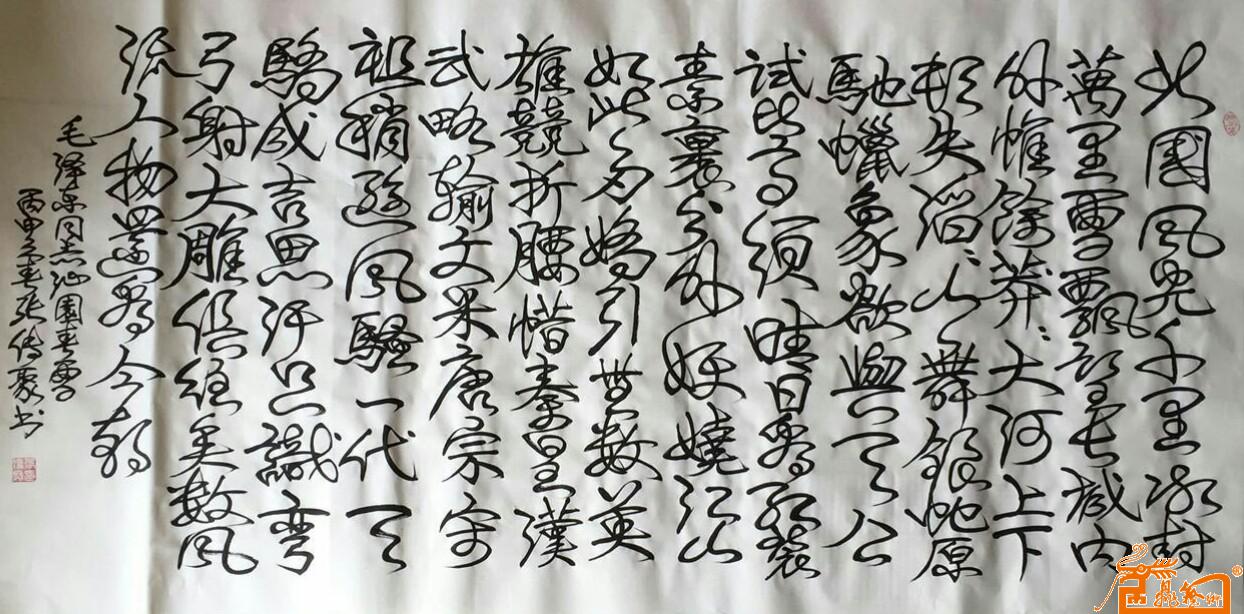 北國風光千里冰封
萬里雪飄望長城内
外惟餘莽〻大河上下
頓失滔〻山舞銀蛇原
馳蠟象欲與天公
試比高須晴日看紅裝
素裹分外妖嬈江山
如此多嬌引無數英
雄競折腰惜秦皇漢
武略輸文采唐宗宋
祖稍遜風騷一代天
驕成吉思汗只識彎
弓射大雕俱往矣數風
流人物還看今朝
毛澤東同志沁園春雪
丙申之春張傳书